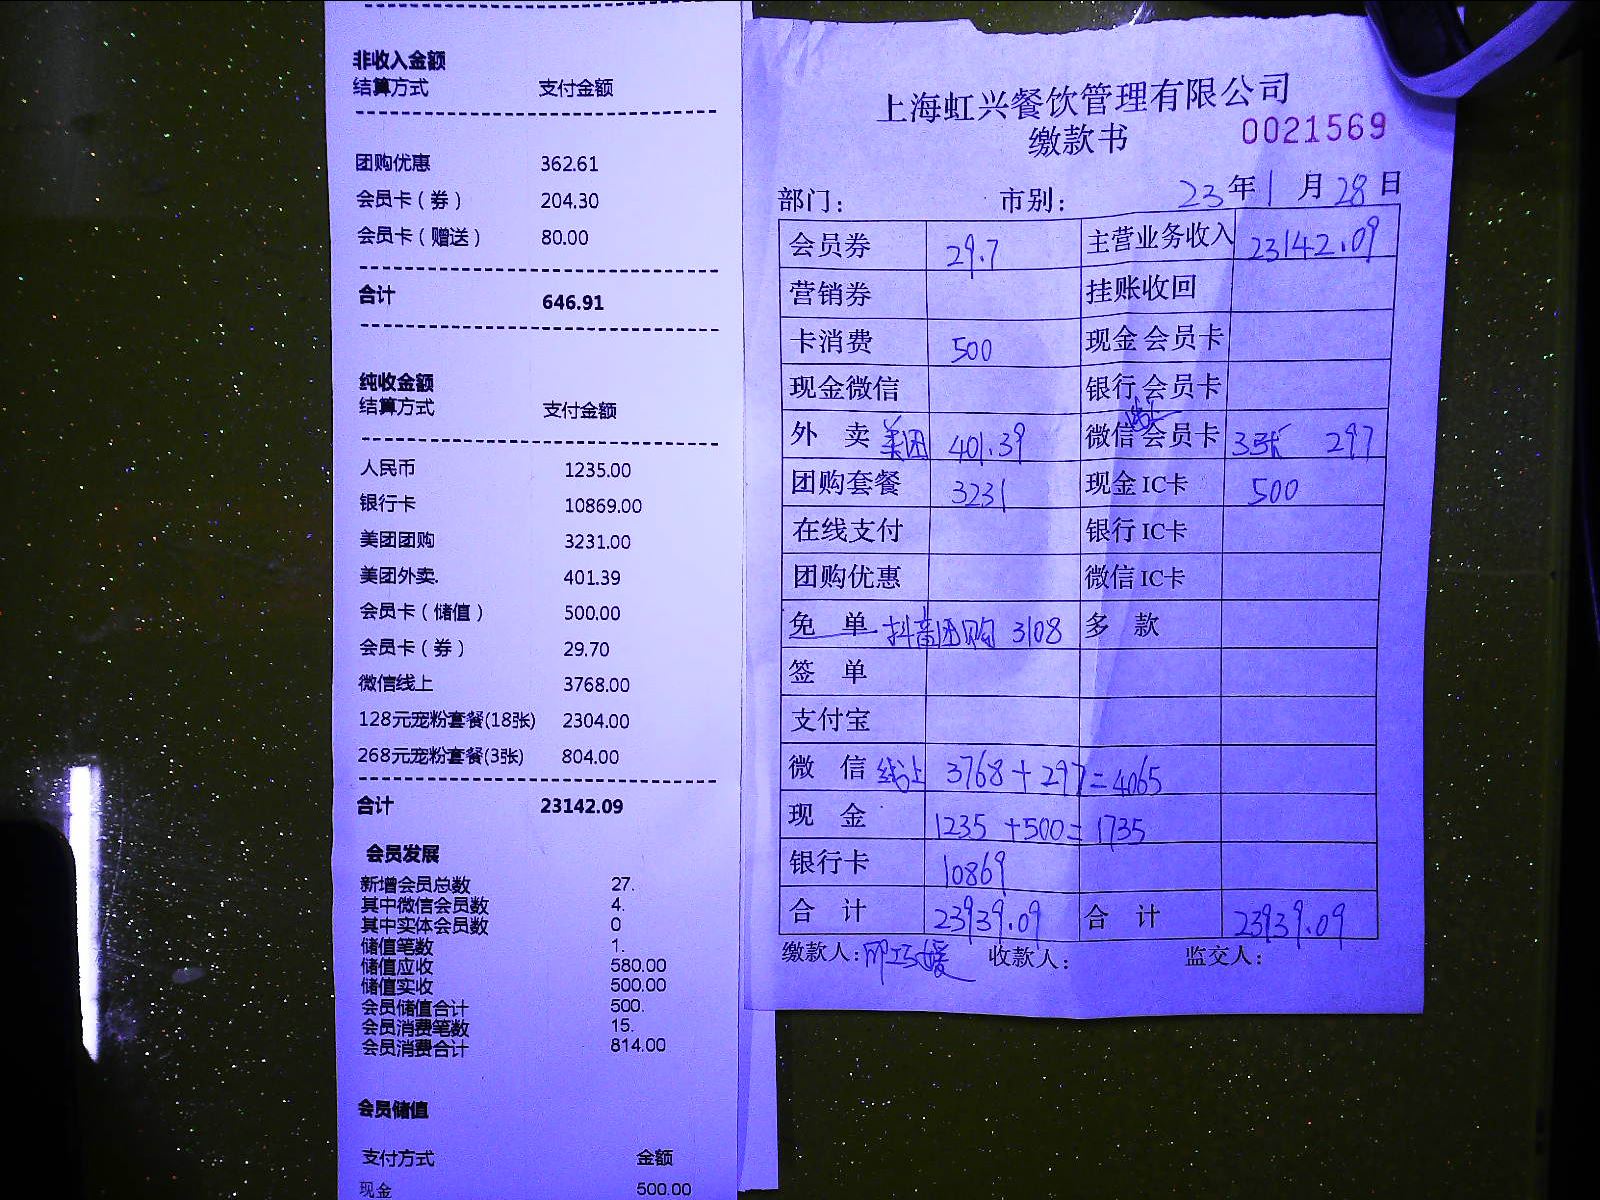 非收入金额
结算方式 支付金额
团购优惠 362.61
会员卡（券） 204.30
会员卡（赠送） 80.00
合计 646.91
纯收金额
结算方式 支付金额
人民币 1235.00
银行卡 10869.00
美团团购 3231.00
美团外卖. 401.39
会员卡（储值） 500.00
会员卡（券） 29.70
微信线上 3768.00
128元宠粉套餐(18张) 2304.00
268元宠粉套餐(3张) 804.00
合计 23142.09
会员发展
新增会员总数 27.
其中微信会员数 4.
其中实体会员数 0
储值笔数 1.
储值应收 580.00
储值实收 500.00
会员储值合计 500.
会员消费笔数 15.
会员消费合计 814.00
会员储值
支付方式 金额
现金 500.00
上海虹兴餐饮管理有限公司
缴款书 0021569
部门： 市别： 23年1月28日
会员券 29.7 主营业务收入 23142.09
营销券 挂账收回
卡消费 500 现金会员卡
现金微信 银行会员卡
外卖 美团 401.39 微信会员卡 3张 297
团购套餐 3231 现金IC卡 500
在线支付 银行IC卡
团购优惠 微信IC卡
免单 抖音团购 3108 多款
签单
支付宝
微信 线上 3768+297=4065
现金 1235+500=1735
银行卡 10869
合计 23939.09 合计 23939.09
缴款人： 收款人： 监交人：